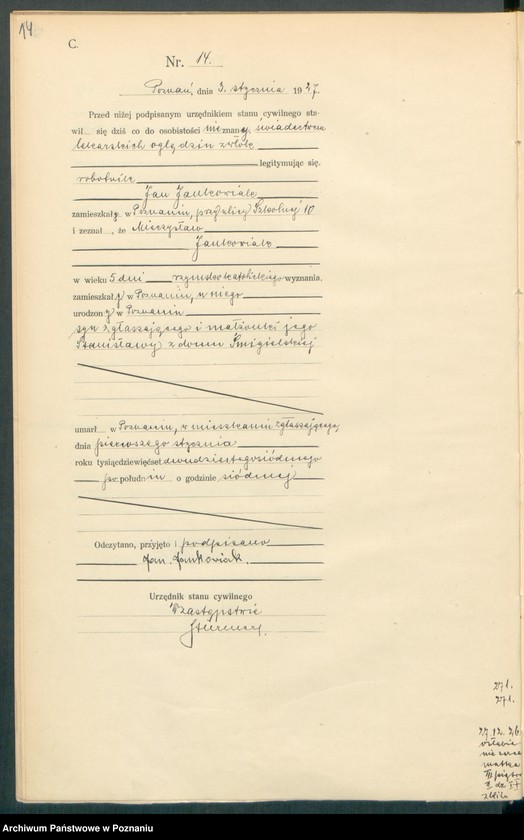 14
C.
Nr. 14.
Poznań, dnia 3. stycznia 1927.
Przed niżej podpisanym urzędnikiem stanu cywilnego sta-
wił się dziś co do osobistości nieznany, świadectwem
lekarskich oględzin zwłok
legitymując się,
robotnik
Jan Jankowiak
zamieszkały w Poznaniu, przy ulicy Szkolnej 10
i zeznał, że Mieczysław
Jankowiak
w wieku 5 dni rzymskokatolickiego wyznania,
zamieszkały w Poznaniu, u niego
urodzony w Poznaniu
syn zgłaszającego i małżonki jego
Stanisławy z domu Śmigielskiej
umarł w Poznaniu, w mieszkaniu zgłaszającego,
dnia pierwszego stycznia
roku tysiącdziewięćset dwudziestegosiódmego
po południu o godzinie siódmej
Odczytano, przyjęto i podpisano
Jan Jankowiak.
Urzędnik stanu cywilnego
W zastępstwie
271.
271.
27.12.26
matka
Archiwum Państwowe w Poznaniu